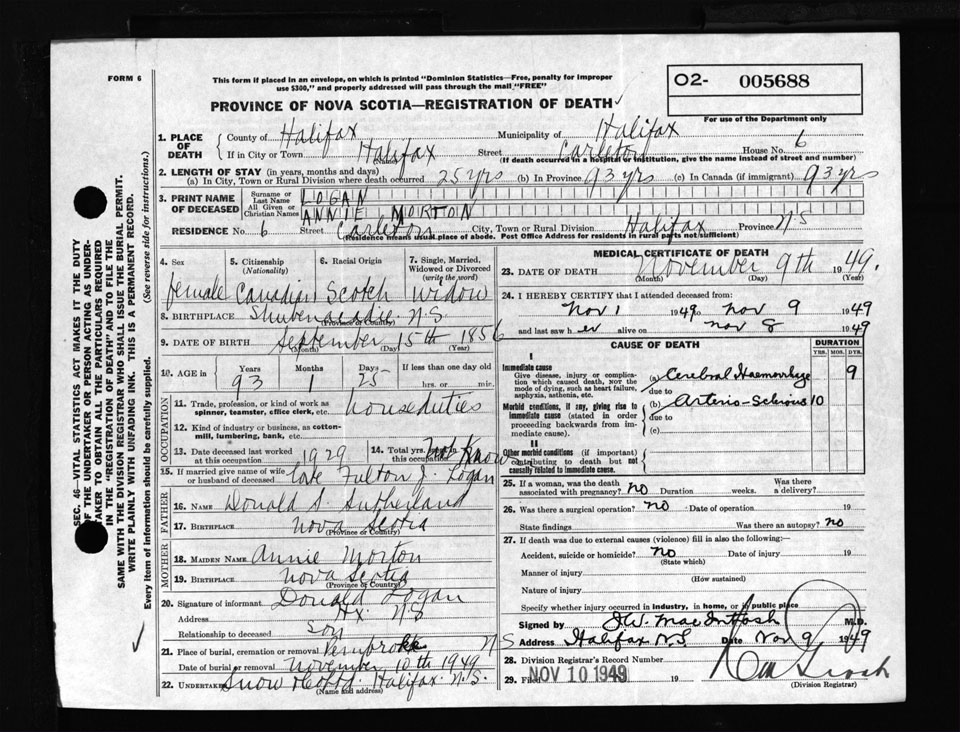 FORM 6
This form if placed in an envelope, on which is printed "Dominion Statistics—Free, penalty for improper
use $300," and properly addressed will pass through the mail "FREE"
O2- 005688
For use of the Department only
PROVINCE OF NOVA SCOTIA—REGISTRATION OF DEATH
1. PLACE OF DEATH { County of Halifax Municipality of Halifax
If in City or Town Halifax Street Carleton House No. 6
(If death occurred in a hospital or institution, give the name instead of street and number)
2. LENGTH OF STAY (in years, months and days)
(a) In City, Town or Rural Division where death occurred 25 yrs (b) In Province 93 yrs (c) In Canada (if immigrant) 93 yrs
3. PRINT NAME OF DECEASED { Surname or Last Name LOGAN
All Given or Christian Names ANNIE MORTON
RESIDENCE No. 6 Street Carleton City, Town or Rural Division Halifax Province N.S
(Residence means usual place of abode. Post Office Address for residents in rural parts not sufficient)
4. Sex female
5. Citizenship (Nationality) Canadian
6. Racial Origin Scotch
7. Single, Married, Widowed or Divorced (write the word) Widow
8. BIRTHPLACE Shubenacadie N.S.
(Province or Country)
9. DATE OF BIRTH September 15th 1856
(Month) (Day) (Year)
10. AGE in Years 93 Months 1 Days 25 If less than one day old hrs. or min.
OCCUPATION
11. Trade, profession, or kind of work as spinner, teamster, office clerk, etc. house duties
12. Kind of industry or business, as cotton-mill, lumbering, bank, etc.
13. Date deceased last worked at this occupation 1929
14. Total yrs. in this occupation not know
15. If married give name of wife or husband of deceased late Fulton J. Logan
FATHER
16. NAME Donald S. Sutherland
17. BIRTHPLACE Nova Scotia
(Province or Country)
MOTHER
18. MAIDEN NAME Annie Morton
19. BIRTHPLACE Nova Scotia
(Province or Country)
20. Signature of informant Donald Logan
Address Hx. N-S
Relationship to deceased Son
21. Place of burial, cremation or removal Pembroke N S
Date of burial or removal November 10th 1949
22. Undertaker Snow Halifax N.S.
(Name and address)
MEDICAL CERTIFICATE OF DEATH
23. DATE OF DEATH November 9th 1949.
(Month) (Day) (Year)
24. I HEREBY CERTIFY that I attended deceased from:
Nov 1 1949 to Nov 9 1949
and last saw her alive on Nov 8 1949
CAUSE OF DEATH
DURATION
YRS. MOS. DYS.
I
Immediate cause
Give disease, injury or complication which caused death, NOT the mode of dying, such as heart failure, asphyxia, asthenia, etc.
(a) Cerebral Haemorrhage 9
due to
Morbid conditions, if any, giving rise to immediate cause (stated in order proceeding backwards from immediate cause).
(b) Arterio-Sclerosis 10
due to
(c)
II
Other morbid conditions (if important) contributing to death but not causally related to immediate cause.
25. If a woman, was the death associated with pregnancy? No Duration weeks. Was there a delivery?
26. Was there a surgical operation? No Date of operation 19
State findings Was there an autopsy? No
27. If death was due to external causes (violence) fill in also the following:—
Accident, suicide or homicide? No Date of injury 19
(State which)
Manner of injury
(How sustained)
Nature of injury
Specify whether injury occurred in industry, in home, or in public place
Signed by J.W. MacIntosh M.D.
Address Halifax N.S Date Nov 9 1949
28. Division Registrar's Record Number
29. Filed NOV 10 1949 19
(Division Registrar)
SEC. 46—VITAL STATISTICS ACT MAKES IT THE DUTY
OF THE UNDERTAKER OR PERSON ACTING AS UNDERTAKER
TO OBTAIN ALL THE PARTICULARS REQUIRED
IN THE "REGISTRATION OF DEATH" AND TO FILE THE
SAME WITH THE DIVISION REGISTRAR WHO SHALL ISSUE THE BURIAL PERMIT.
WRITE PLAINLY WITH UNFADING INK. THIS IS A PERMANENT RECORD.
Every item of information should be carefully supplied. (See reverse side for instructions.)